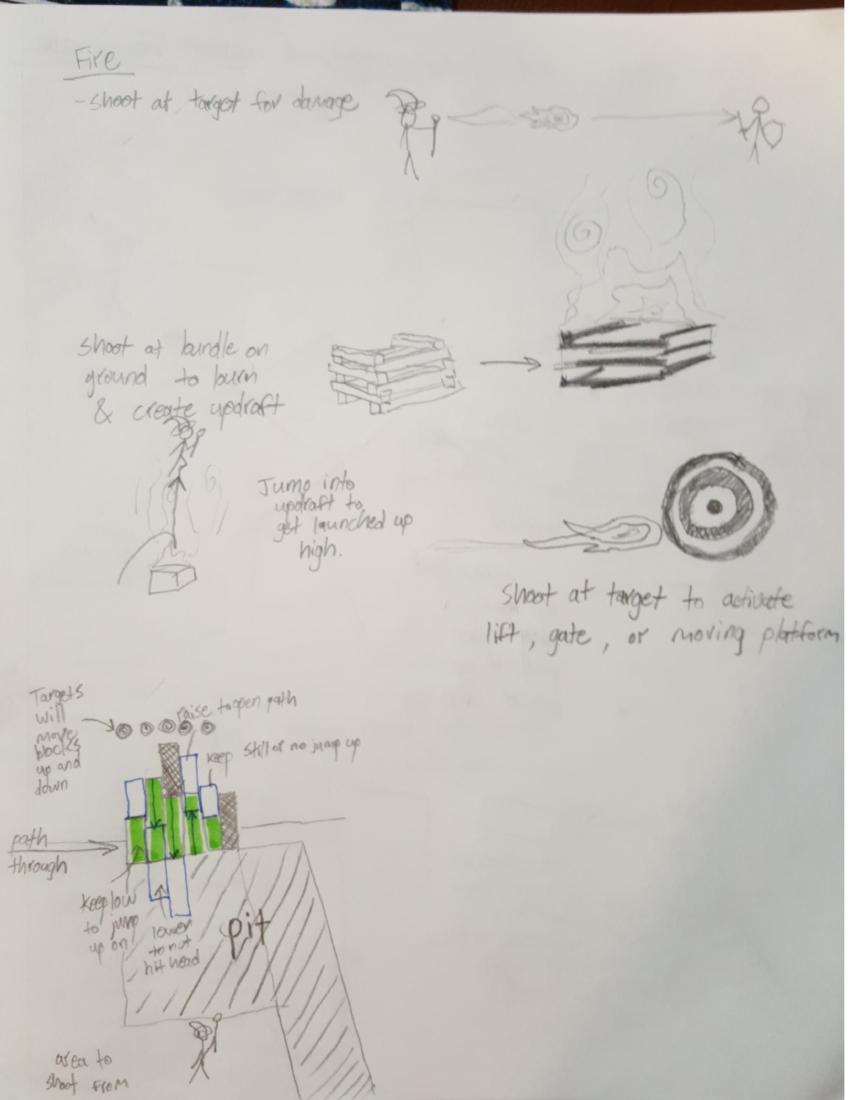 Fire
-shoot at target for damage
shoot at bundle on
ground to burn
& create updraft
Jump into
updraft to
get launched up
high.
shoot at target to activate
lift, gate, or moving platform
Targets
will
move
blocks
up and
down
raise to open path
keep still or no jump up
path
through
keep low
to jump
up on
lower
to not
hit head
pit
area to
shoot from